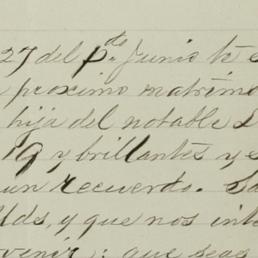 27 del pdo. Junio te
proximo matrimo
hija del notable
19 y brillantes y e
un recuerdo. Sa
Uds, y que nos int
venir; que seas